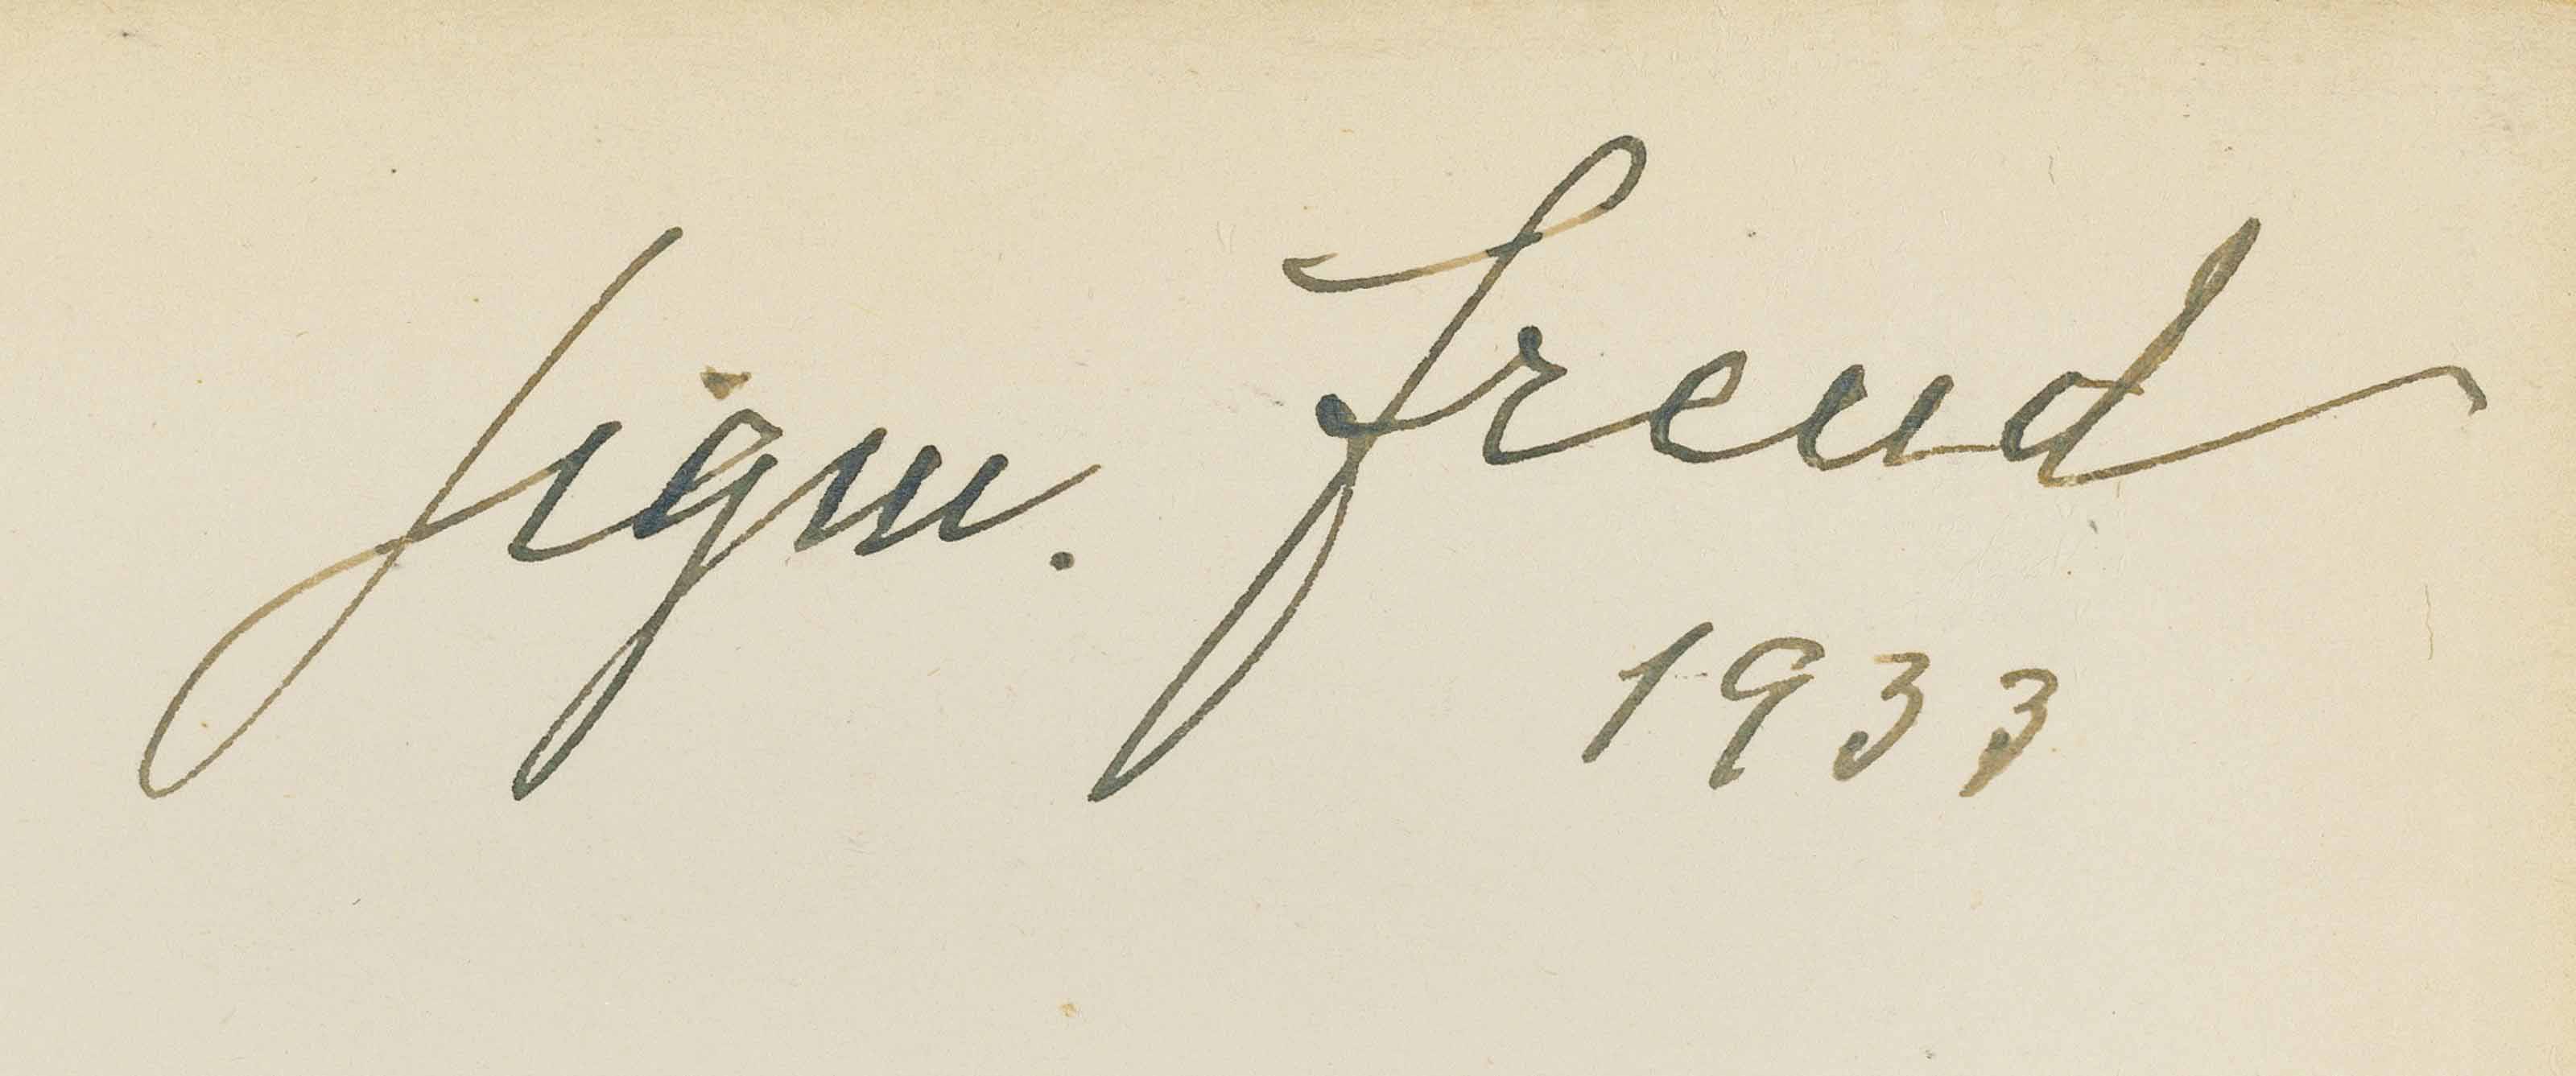 Sigm. Freud
1933